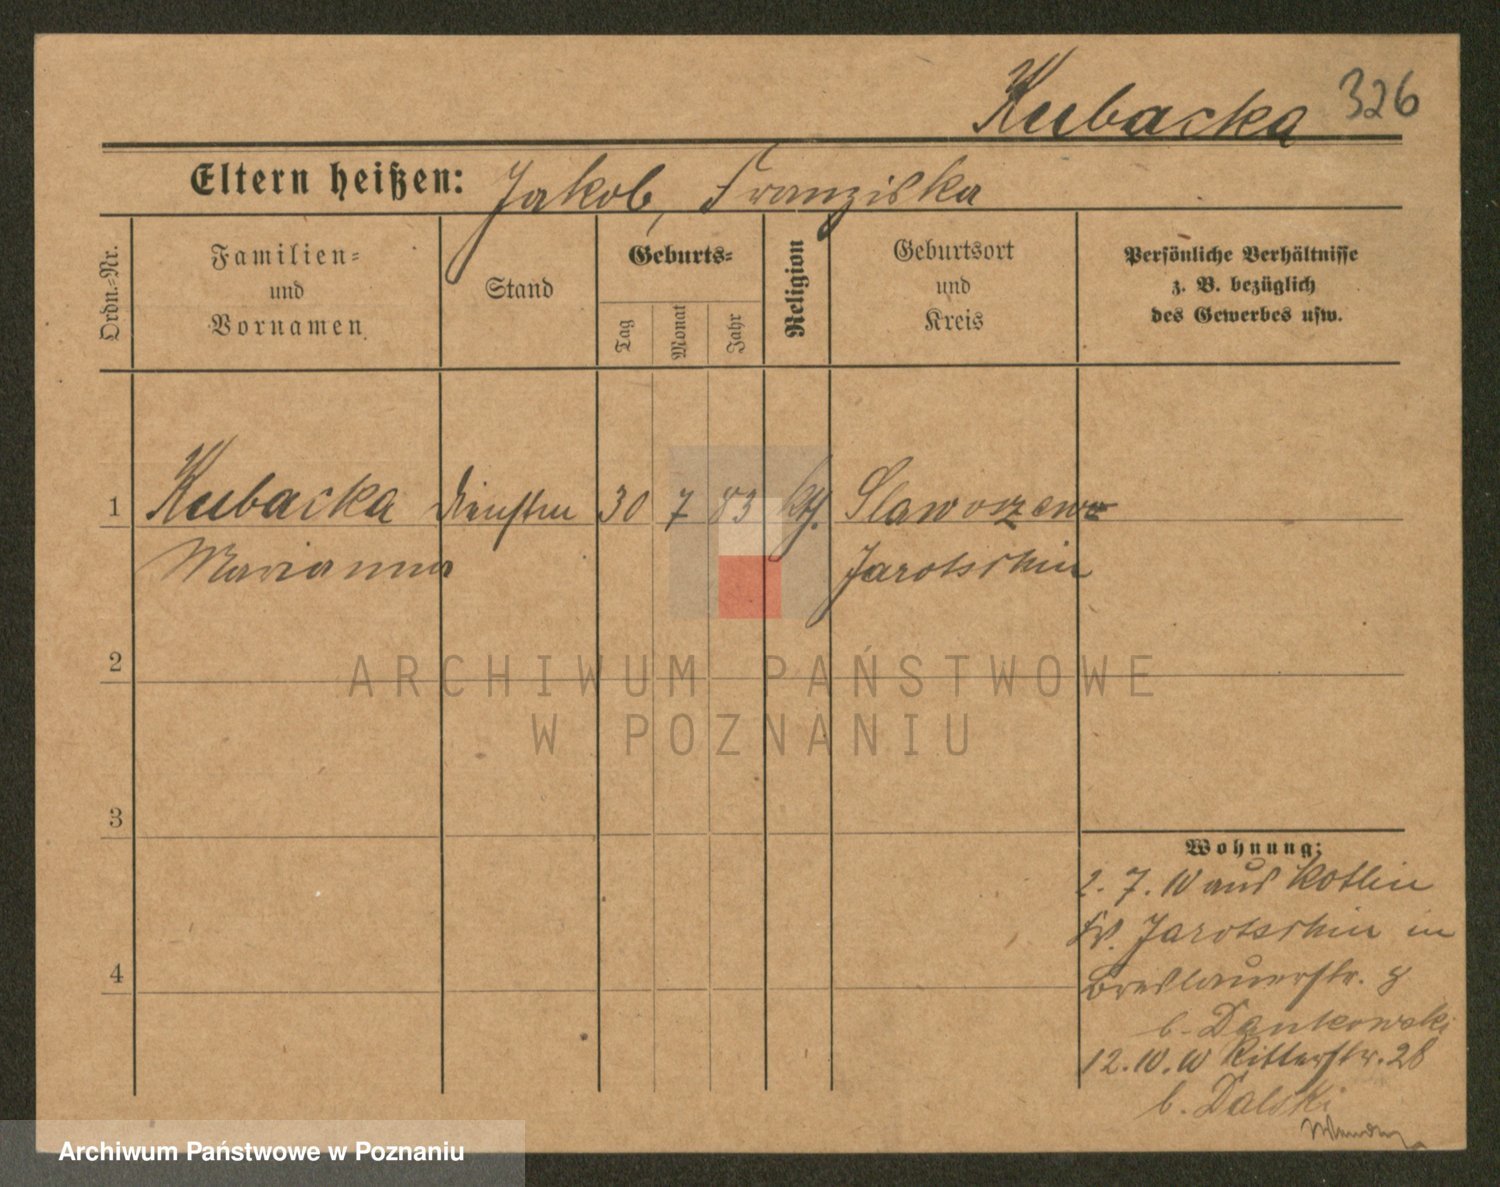 Kubacka 326
Eltern heißen: Jakob, Franziska
Ordn.-Nr.
Familien-
und
Vornamen
Stand
Geburts-
Tag
Monat
Jahr
Religion
Geburtsort
und
Kreis
Persönliche Verhältnisse
z. B. bezüglich
des Gewerbes usw.
1 Kubacka 30 7 83 kth. Slaworzewo
Marianna Jarotschin
2
3
4
Wohnung:
2. 7. 10 aus Kotlin
Kr. Jarotschin in
Breslauerstr. 9
b. Dankowski
12. 10. 10 Ritterstr. 28
b. Dalski
ARCHIWUM PAŃSTWOWE
W POZNANIU
Archiwum Państwowe w Poznaniu